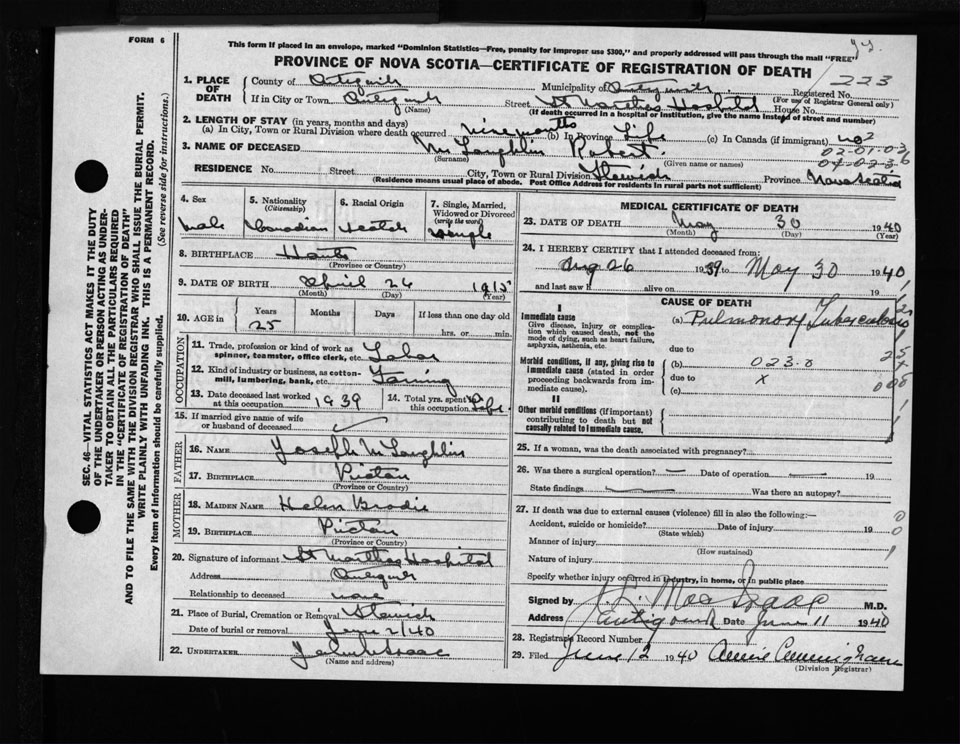 FORM 6
This form if placed in an envelope, marked "Dominion Statistics—Free, penalty for improper use $300," and properly addressed will pass through the mail "FREE"
PROVINCE OF NOVA SCOTIA—CERTIFICATE OF REGISTRATION OF DEATH
1. PLACE OF DEATH
County of
Municipality of
Registered No. 223
(For use of Registrar General only)
If in City or Town
(Name)
Street St Marthas Hospital House No.
(If death occurred in a hospital or institution, give the name instead of street and number)
2. LENGTH OF STAY (in years, months and days)
(a) In City, Town or Rural Division where death occurred nine months (b) In Province Life (c) In Canada (if immigrant)
3. NAME OF DECEASED McLaughlin Robert
(Surname) (Given name or names)
RESIDENCE No. Street City, Town or Rural Division Province Nova Scotia
(Residence means usual place of abode. Post Office Address for residents in rural parts not sufficient)
4. Sex
Male
5. Nationality
(Citizenship)
Canadian
6. Racial Origin
Scotch
7. Single, Married, Widowed or Divorced
(write the word)
Single
8. BIRTHPLACE
(Province or Country)
9. DATE OF BIRTH April 26 1915
(Month) (Day) (Year)
10. AGE in
Years Months Days If less than one day old
25 hrs. or min.
OCCUPATION
11. Trade, profession or kind of work as spinner, teamster, office clerk, etc. Labor
12. Kind of industry or business, as cotton-mill, lumbering, bank, etc. Farming
13. Date deceased last worked at this occupation 1939
14. Total yrs. spent in this occupation Life
15. If married give name of wife or husband of deceased
FATHER
16. NAME Joseph McLaughlin
17. BIRTHPLACE Pictou
(Province or Country)
MOTHER
18. MAIDEN NAME Helen Brodie
19. BIRTHPLACE Pictou
(Province or Country)
20. Signature of informant St Marthas Hospital
Address
Relationship to deceased none
21. Place of Burial, Cremation or Removal
Date of burial or removal June 2/40
22. UNDERTAKER
(Name and address)
MEDICAL CERTIFICATE OF DEATH
23. DATE OF DEATH May 30 1940
(Month) (Day) (Year)
24. I HEREBY CERTIFY that I attended deceased from:
Aug 26 1939 to May 30 1940
and last saw h alive on 19
CAUSE OF DEATH
I
Immediate cause
Give disease, injury or complication which caused death, not the mode of dying, such as heart failure, asphyxia, asthenia, etc.
(a) Pulmonary Tuberculosis
due to
Morbid conditions, if any, giving rise to immediate cause (stated in order proceeding backwards from immediate cause).
(b) 023.0
due to x
(c)
II
Other morbid conditions (if important) contributing to death but not causally related to immediate cause.
25. If a woman, was the death associated with pregnancy?
26. Was there a surgical operation? — Date of operation 19
State findings Was there an autopsy?
27. If death was due to external causes (violence) fill in also the following:—
Accident, suicide or homicide? Date of injury 19
(State which)
Manner of injury
(How sustained)
Nature of injury
Specify whether injury occurred in industry, in home, or in public place
Signed by MacIsaac M.D.
Address Antigonish Date June 11 1940
28. Registrar's Record Number
29. Filed June 12 1940 Cunningham
(Division Registrar)
SEC. 46—VITAL STATISTICS ACT MAKES IT THE DUTY OF THE UNDERTAKER OR PERSON ACTING AS UNDERTAKER TO OBTAIN ALL THE PARTICULARS REQUIRED IN THE "CERTIFICATE OF REGISTRATION OF DEATH" AND TO FILE THE SAME WITH THE DIVISION REGISTRAR WHO SHALL ISSUE THE BURIAL PERMIT.
WRITE PLAINLY WITH UNFADING INK. THIS IS A PERMANENT RECORD.
Every item of information should be carefully supplied. (See reverse side for instructions.)